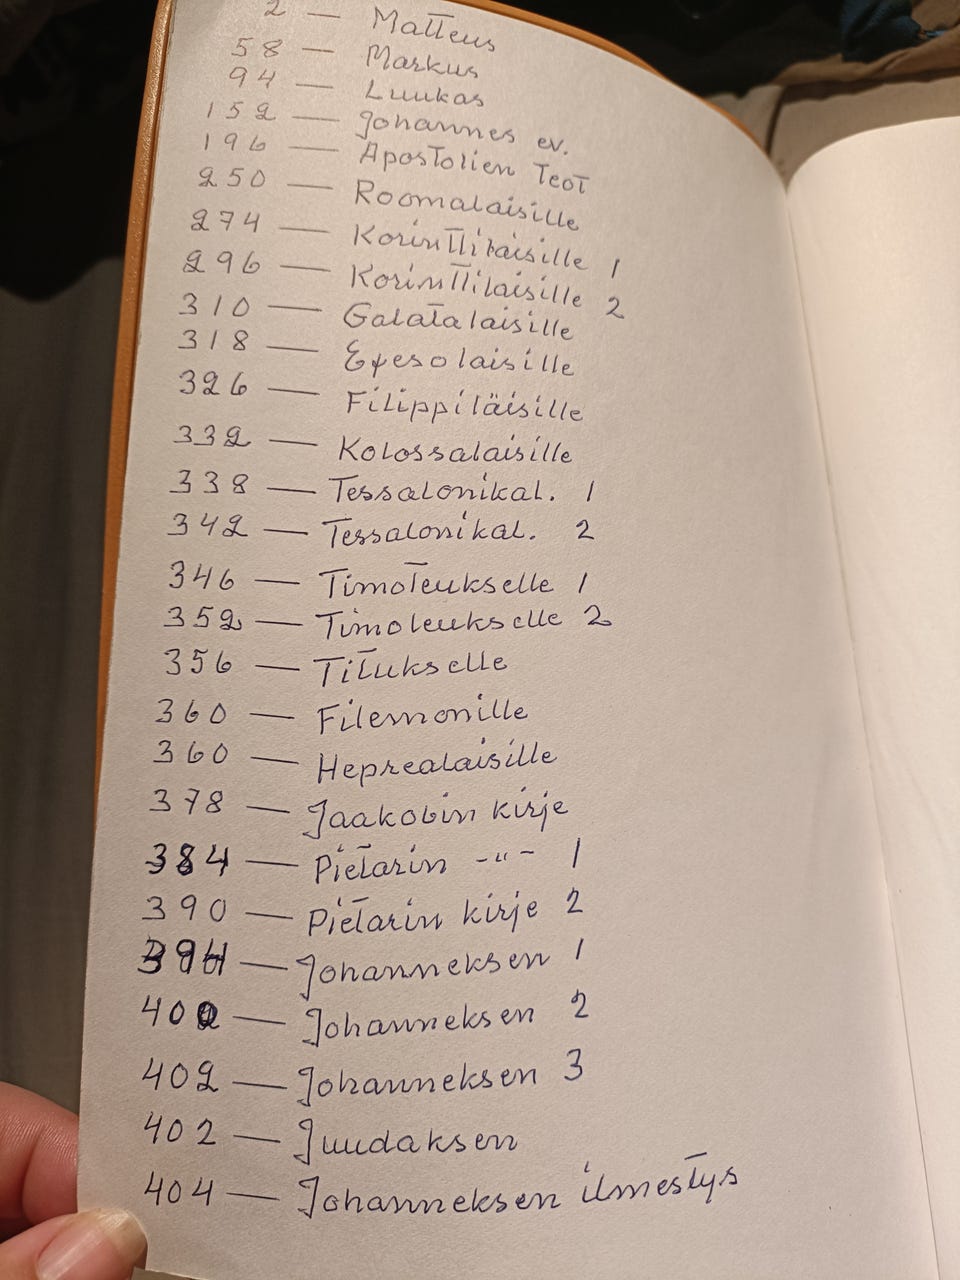 2 — Matteus
58 — Markus
94 — Luukas
152 — Johannes ev.
196 — Apostolien Teot
250 — Roomalaisille
274 — Korinttilaisille 1
296 — Korinttilaisille 2
310 — Galatalaisille
318 — Efesolaisille
326 — Filippiläisille
332 — Kolossalaisille
338 — Tessalonikal. 1
342 — Tessalonikal. 2
346 — Timoteukselle 1
352 — Timoteukselle 2
356 — Titukselle
360 — Filemonille
360 — Heprealaisille
378 — Jaakobin kirje
384 — Pietarin -"- 1
390 — Pietarin kirje 2
394 — Johanneksen 1
402 — Johanneksen 2
402 — Johanneksen 3
402 — Juudaksen
404 — Johanneksen ilmestys